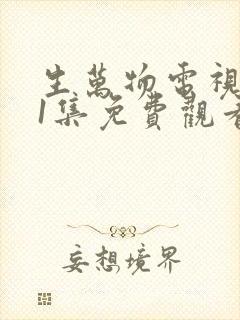 生萬物電視
1集免費觀看
妄想境界